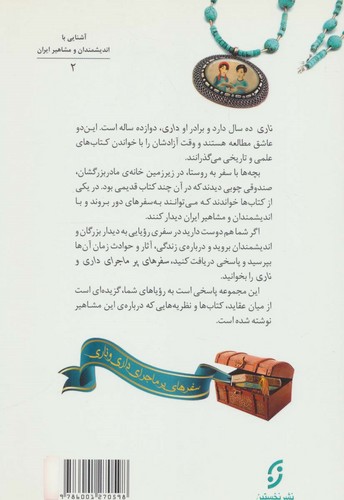 آشنایی با
اندیشمندان و مشاهیر ایران
۲
ناری ده سال دارد و برادر او داری، دوازده ساله است. این‌دو
عاشق مطالعه هستند و وقت آزادشان را با خواندن کتاب‌های
علمی و تاریخی می‌گذرانند.
بچه‌ها با سفر به روستا، در زیرزمین خانه‌ی مادربزرگشان،
صندوقی چوبی دیدند که در آن چند کتاب قدیمی بود. در یکی
از کتاب‌ها خواندند که می‌توانند به‌سفرهای دور بروند و با
اندیشمندان و مشاهیر ایران دیدار کنند.
اگر شما هم دوست دارید در سفری رؤیایی به دیدار بزرگان و
اندیشمندان بروید و درباره‌ی زندگی، آثار و حوادث زمان آن‌ها
بپرسید و پاسخی دریافت کنید، سفرهای پر ماجرای داری و
ناری را بخوانید.
این مجموعه پاسخی است به رؤیاهای شما، گزیده‌ای است
از میان عقاید، کتاب‌ها و نظریه‌هایی که درباره‌ی این مشاهیر
نوشته شده است.
سفرهای پرماجرای داری و ناری
نشر نخستین
9786001270598